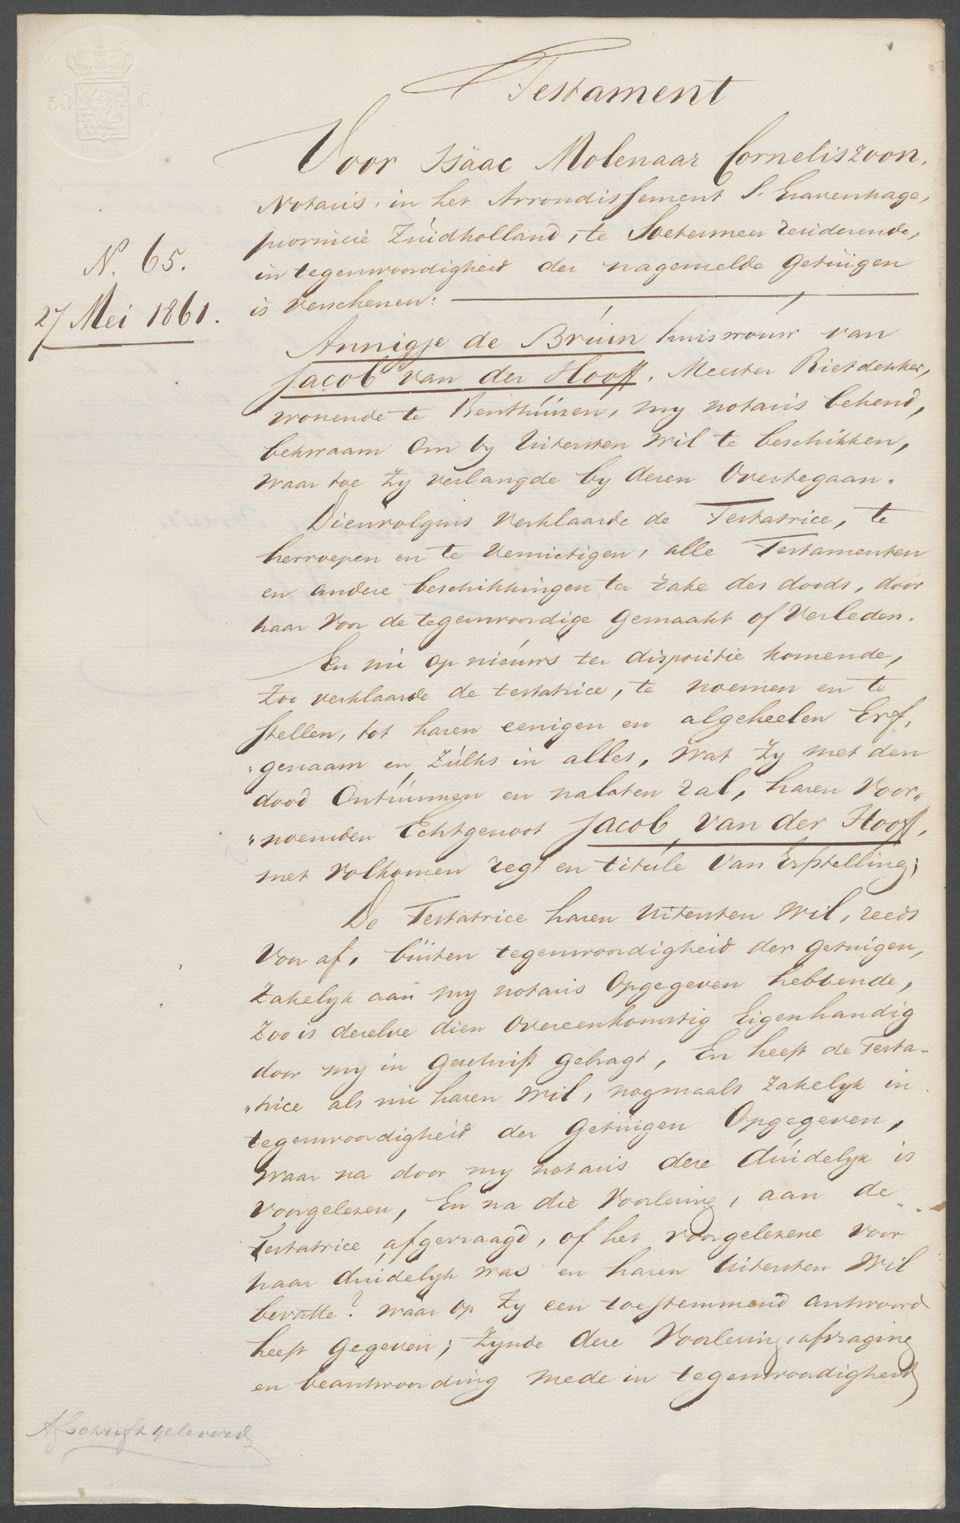 50 C.
Testament
Voor Isäac Molenaar Corneliszoon,
Notaris in het Arrondissement S. Gravenhage,
provincie Zuidholland, te Soetermeer resideerende,
in tegenwoordigheid der nagemelde getuigen
is verschenen:
N. 65.
27 Mei 1861.
Annigje de Bruin huisvrouw van
Jacob van der Hooff, Meester Rietdekker,
wonende te Benthuizen, my notaris bekend,
bekwaam om by Uitersten wil te beschikken,
waar toe Zy verlangde by dezen Overtegaan.
Dienvolgens verklaarde de Testatrice, te
herroepen en te vernietigen, alle Testamenten
en andere beschikkingen ter zake des doods, door
haar Voor de tegenwoordige gemaakt of Verleden.
En nu op nieuws ter dispositie komende,
Zoo verklaarde de testatrice, te noemen en te
stellen, tot haren eenigen en algeheelen Erf,
"genaam en Zulks in alles, wat Zy met den
dood Ontruimen en nalaten zal, haren Voor"
"noemden Echtgenoot Jacob van der Hooff,
met Volkomen regt en titule Van Erfstelling;
De Testatrice haren Uitersten Wil, reeds
Voor af, buiten tegenwoordigheid der getuigen,
Zakelyk aan my notaris Opgegeven hebbende,
Zoo is dezelve dien Overeenkomstig Eigenhandig
door my in geschrift gebragt, En heeft de Testa-
"trice als nu haren Wil, nogmaals Zakelyk in
tegenwoordigheid der getuigen Opgegeven,
waar na door my notaris deze duidelyk is
voorgelezen, En na die Voorlezing, aan de
testatrice afgevraagd, of het voorgelezene voor
haar duidelyk was en haren Uitersten Wil
bevatte? waar op Zy een toestemmend antwoord
heeft gegeven; Zynde deze Voorlezing, afvraging
en beantwoording mede in tegenwoordigheid
Afschrift geleverd